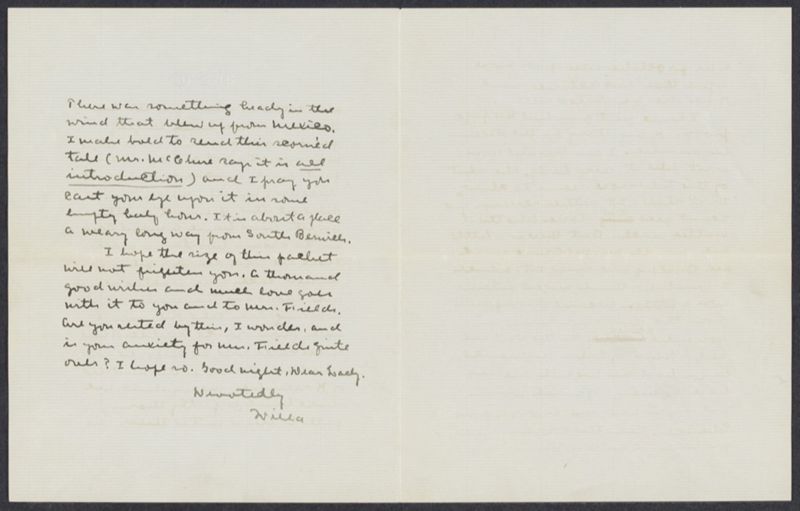 There was something heady in the
wind that blew up from Mexico.
I make bold to send this scorned
tale (Mr. McClure says it is all
introduction) and I pray you
cast your eye upon it in some
empty half hour. It is about a place
a weary long way from South Berwick.
I hope the size of this packet
will not frighten you. A thousand
good wishes and much love goes
with it to you and to Mrs. Fields.
Are you rested by this, I wonder, and
is your anxiety for Mrs. Fields quite
over? I hope so. Good night, Dear Lady.
Devotedly
Willa